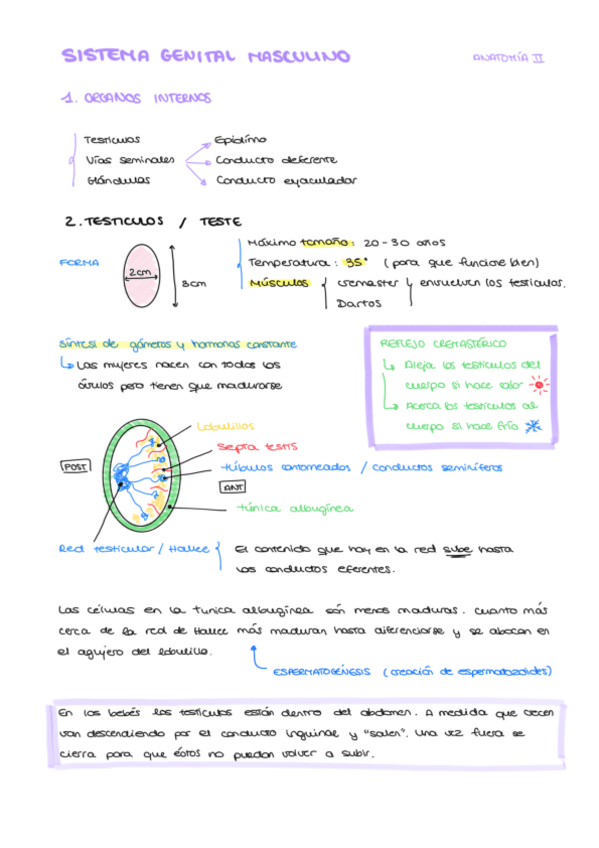 SISTEMA GENITAL MASCULINO
ANATOMÍA II
1. ORGANOS INTERNOS
Testiculos
Vías seminales
Glándulas
Epidimo
Conducto deferente
Conducto eyaculador
2. TESTICULOS / TESTE
FORMA
2cm
3cm
Máximo tamaño: 20-30 años
Temperatura: 35° (para que funcione bien)
Músculos { cremaster } envuelven los testiculos.
Dartos
síntesi de gámetos y hormonas constante
Las mujeres nacen con todos los
óvulos pero tienen que madurarse
REFLEJO CREMASTÉRICO
Aleja los testiculos del
cuerpo si hace calor
Acerca los testiculos al
cuerpo si hace frío
Lobulillos
Septa testis
POST
túbulos contorneados / conductos seminíferos
ANT
túnica albugínea
Red testicular / Haller { El contenido que hay en la red sube hasta
los conductos eferentes.
Las células en la tunica albugínea són menos maduras. cuanto más
cerca de la red de Haller más maduran hasta diferenciarse y se abocan en
el agujero del lobulillo.
ESPERMATOGÉNESIS (creación de espermatozoides)
En los bebés los testiculos están dentro del abdomen. A medida que crecen
van descendiendo por el conducto inguinal y "salen". Una vez fuera se
cierra para que éstos no puedan volver a subir.